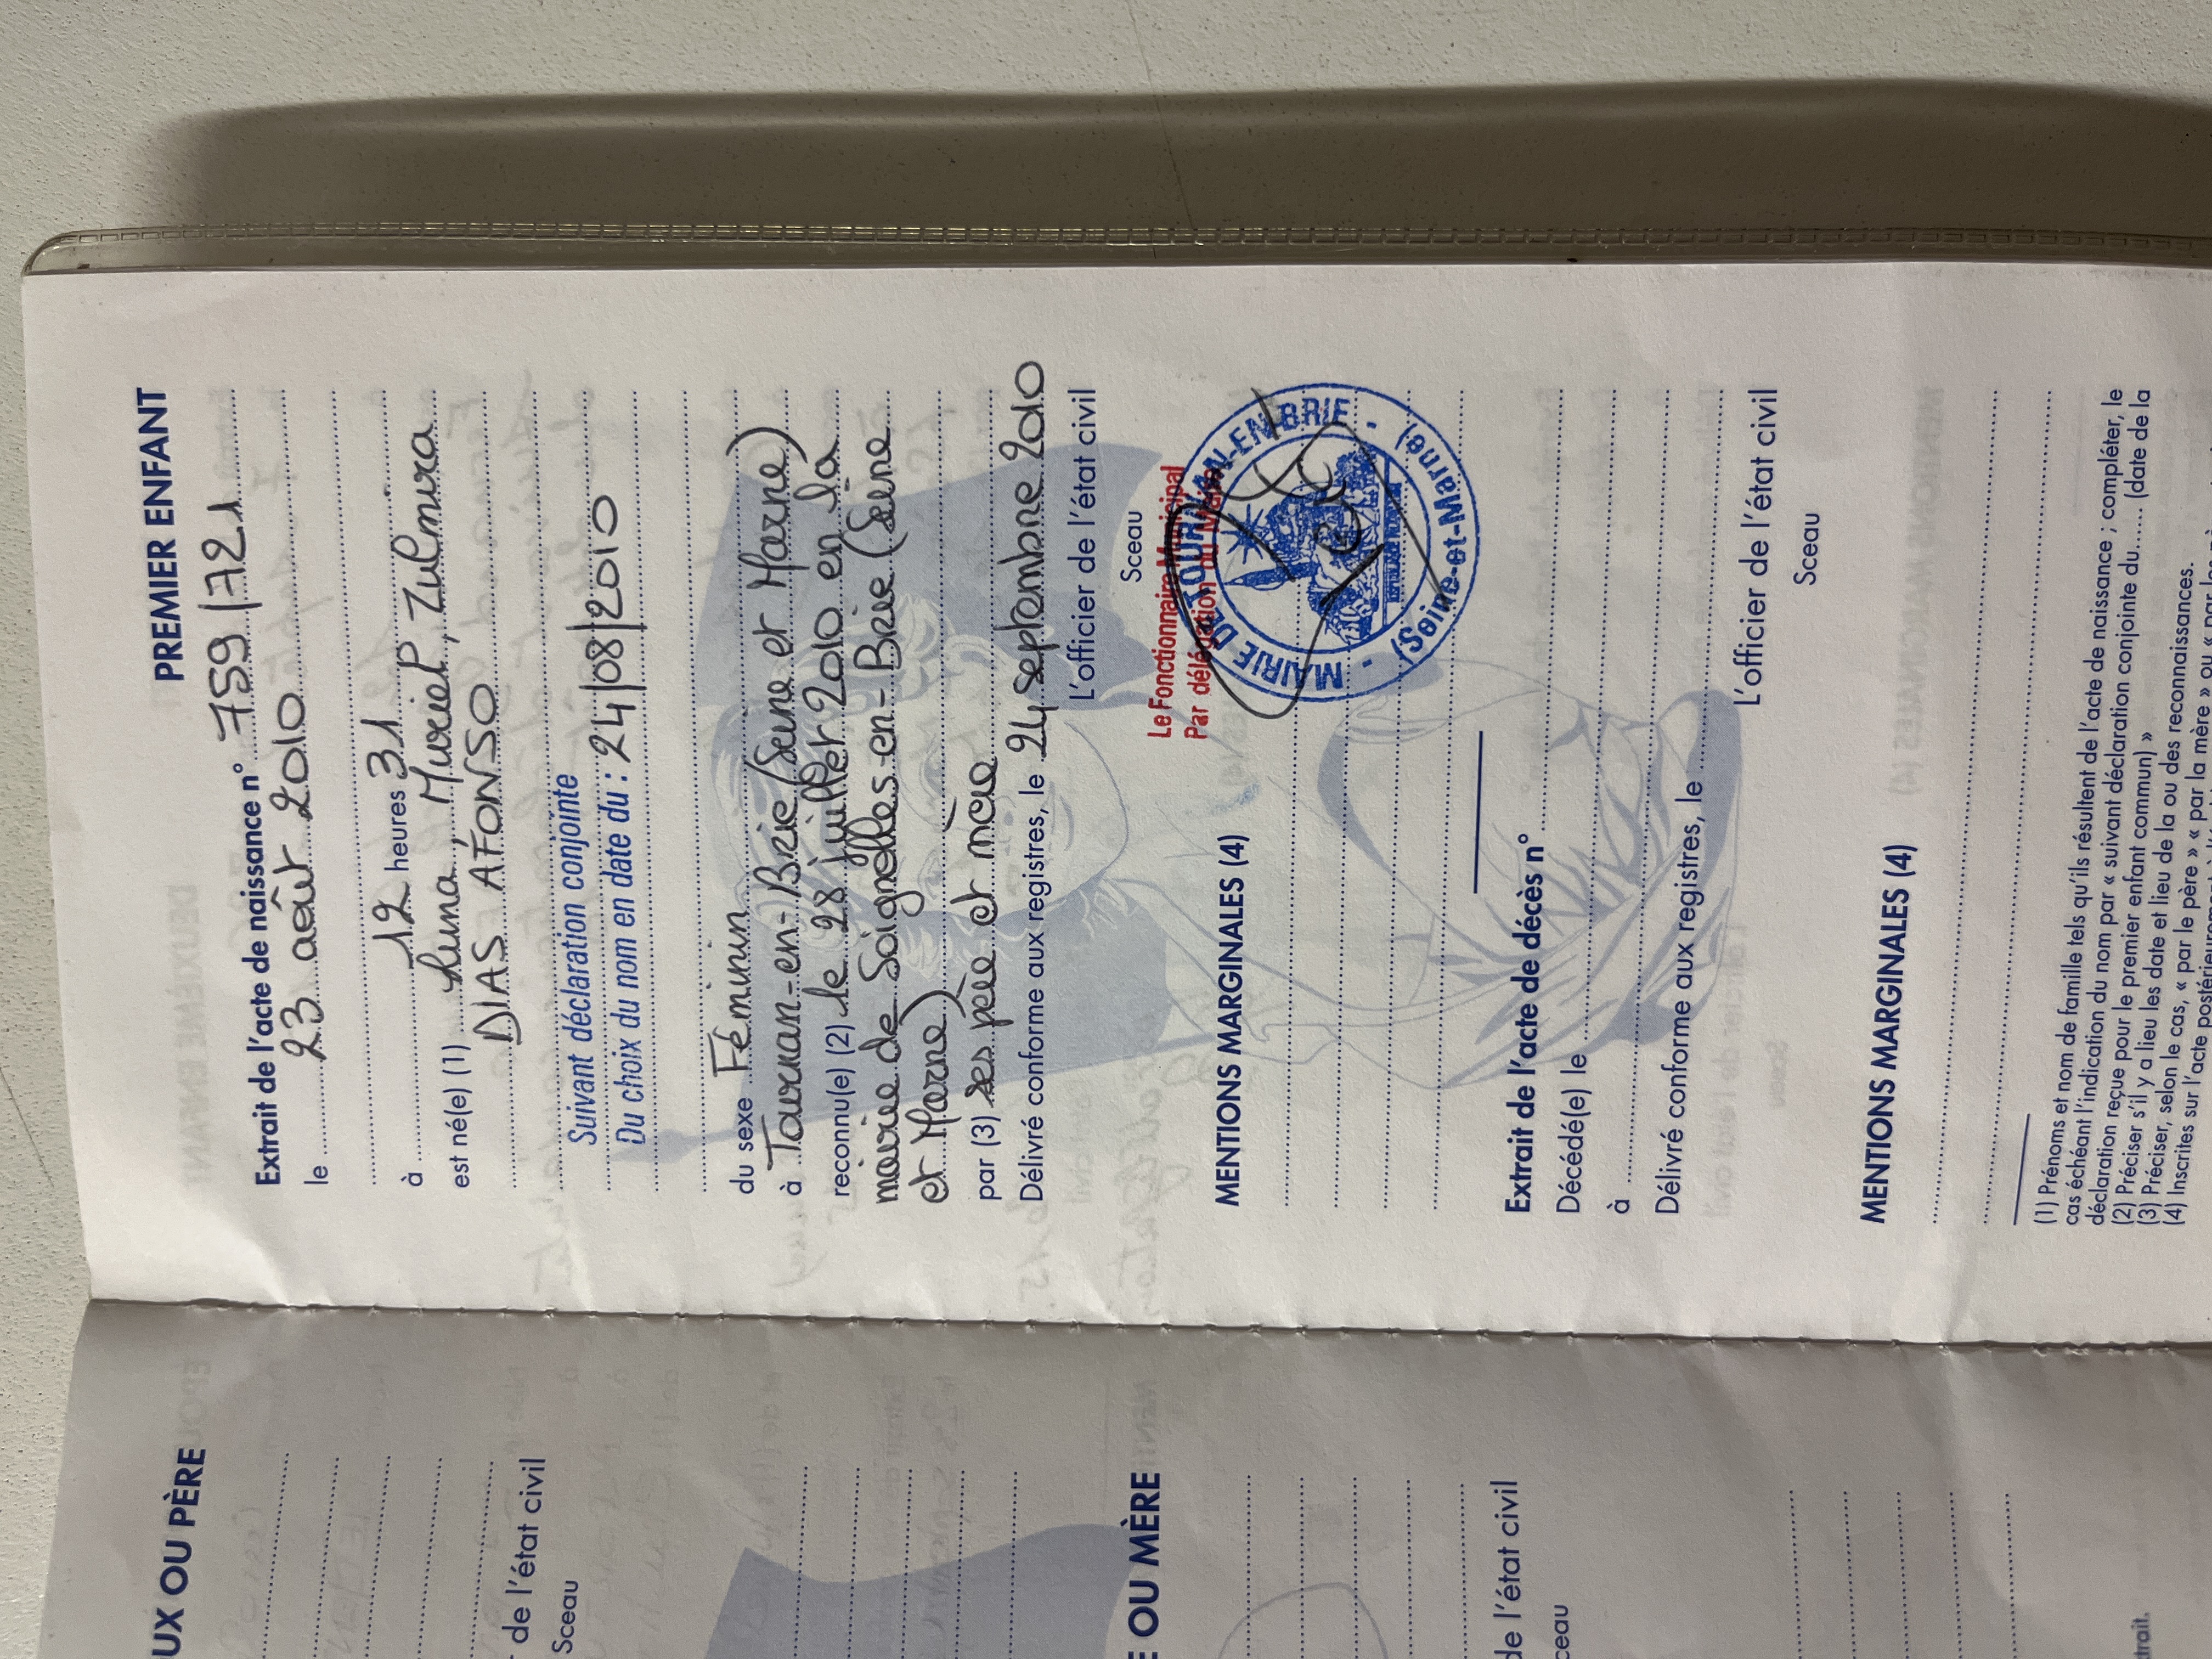 PREMIER ENFANT
Extrait de l'acte de naissance n° 759/721
le 23 août 2010
à 12 heures 31
est né(e) (1) Luna, Muriel, Zulmira
DIAS AFONSO
Suivant déclaration conjointe
Du choix du nom en date du : 24/08/2010
du sexe Féminin
à Tournan-en-Brie (Seine et Marne)
reconnu(e) (2) le 28 juillet 2010 en la
mairie de Soignolles-en-Brie (Seine
et Marne)
par (3) ses père et mère
Délivré conforme aux registres, le 24 septembre 2010
L'officier de l'état civil
Sceau
Le Fonctionnaire Municipal
Par délégation du Maire
MAIRIE DE TOURNAN-EN-BRIE - (Seine-et-Marne) -
MENTIONS MARGINALES (4)
Extrait de l'acte de décès n°
Décédé(e) le
à
Délivré conforme aux registres, le
L'officier de l'état civil
Sceau
MENTIONS MARGINALES (4)
(1) Prénoms et nom de famille tels qu'ils résultent de l'acte de naissance ; compléter, le
cas échéant l'indication du nom par « suivant déclaration conjointe du...... (date de la
déclaration reçue pour le premier enfant commun) »
(2) Préciser s'il y a lieu les date et lieu de la ou des reconnaissances.
(3) Préciser, selon le cas, « par le père » « par la mère » ou « par les
(4) Inscrites sur l'acte postérieurement
UX OU PÈRE
de l'état civil
Sceau
E OU MÈRE
de l'état civil
ceau
trait.